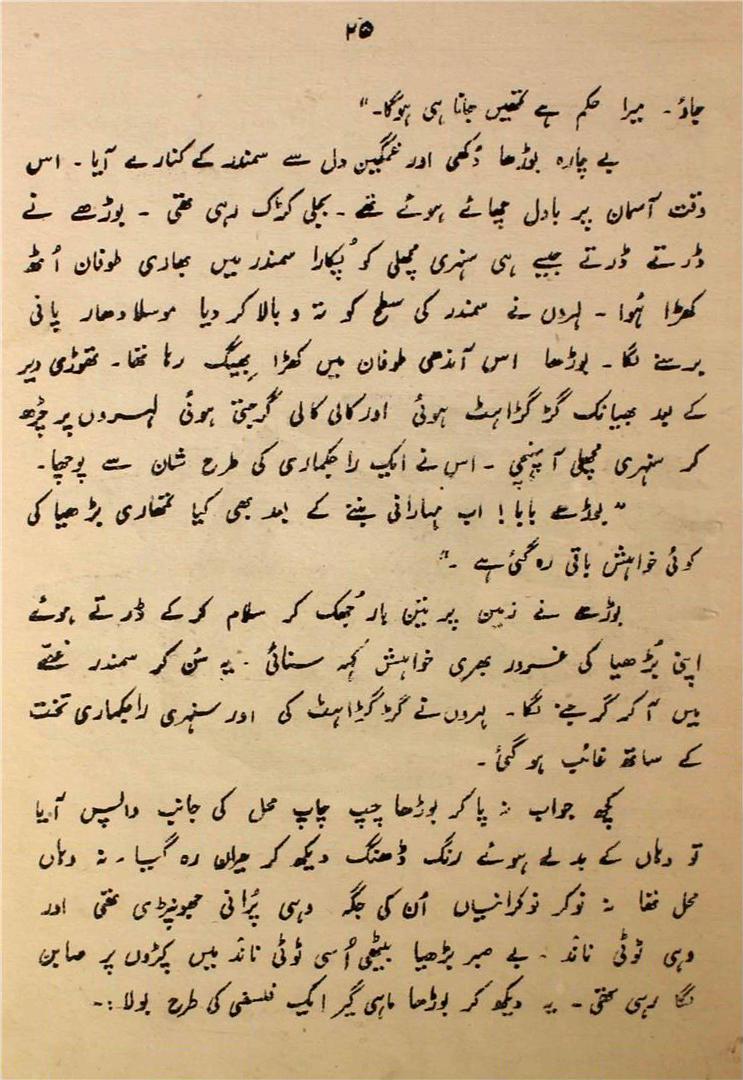 ۲۵
جاؤ ۔ میرا حکم ہے تمھیں جانا ہی ہوگا۔"
بے چارہ بوڑھا دُکھی اور غمگین دل سے سمندر کے کنارے آیا ۔ اس
وقت آسمان پر بادل چھائے ہوئے تھے ۔ بجلی کڑک رہی تھی ۔ بوڑھے نے
ڈرتے ڈرتے جیسے ہی سنہری مچھلی کو پُکارا سمندر میں بھاری طوفان اُٹھ
کھڑا ہُوا ۔ لہروں نے سمندر کی سطح کو تہ و بالا کر دیا موسلا دھار پانی
برسنے لگا ۔ بوڑھا اس آندھی طوفان میں کھڑا بِھیگ رہا تھا ۔ تھوڑی دیر
کے بعد بھیانک گڑ گڑاہٹ ہوئی اور کالی کالی گرجتی ہوئی لہروں پر چڑھ
کر سنہری مچھلی آ پہنچی ۔ اس نے ایک راجکماری کی طرح شان سے پوچھا ۔
" بوڑھے بابا ! اب مہارانی بننے کے بعد بھی کیا تمھاری بڑھیا کی
کوئی خواہش باقی رہ گئی ہے ۔"
بوڑھے نے زمین پر تین بار جُھک کر سلام کر کے ڈرتے ہوئے
اپنی بُڑھیا کی غرور بھری خواہش کہہ سنائی ۔ یہ سُن کر سمندر غصّے
میں آ کر گرجنے لگا ۔ لہروں نے گڑ گڑاہٹ کی اور سنہری راجکماری تخت
کے ساتھ غائب ہو گئی ۔
کچھ جواب نہ پا کر بوڑھا چپ چاپ محل کی جانب واپس آیا
تو وہاں کے بدلے ہوئے رنگ ڈھنگ دیکھ کر حیران رہ گیا ۔ نہ وہاں
محل تھا نہ نوکر نوکرانیاں اُن کی جگہ وہی پُرانی جھونپڑی تھی اور
وہی ٹوٹی ناند ۔ بے صبر بڑھیا بیٹھی اُسی ٹوٹی ناند میں کپڑوں پر صابن
لگا رہی تھی ۔ یہ دیکھ کر بوڑھا ماہی گیر ایک فلسفی کی طرح بولا :۔